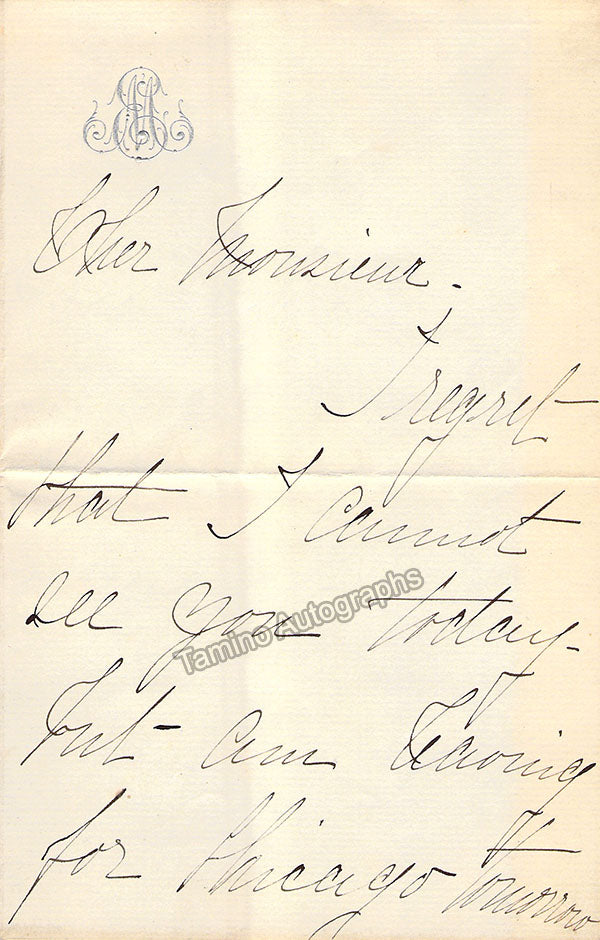 Cher Monsieur.
I regret
that I cannot
see you today
Tamino Autographs
but am leaving
for Chicago tomorrow